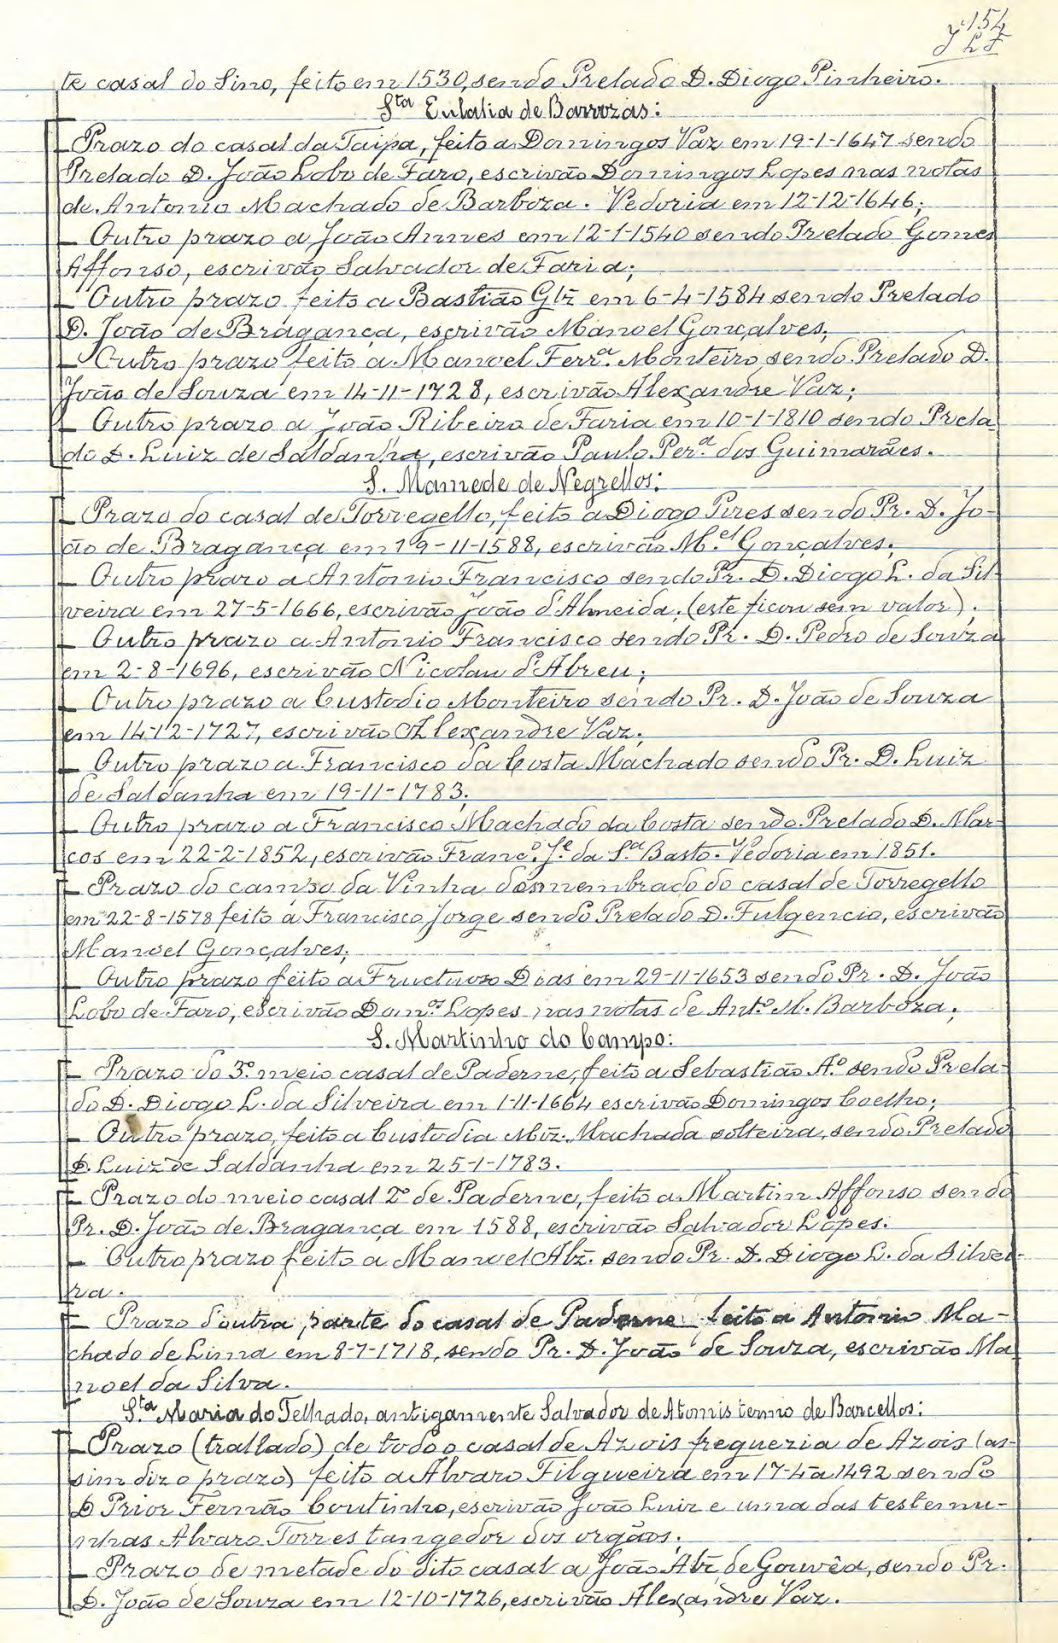 154
te casal do Sino, feito em 1530, sendo Prelado D. Diogo Pinheiro.
Sta Eulalia de Barrozas:
Prazo do casal da Taipa, feito a Domingos Vaz em 19-1-1647 sendo
Prelado D. João Lobo de Faro, escrivão Domingos Lopes nas notas
de Antonio Machado de Barboza. Vedoria em 12-12-1646;
Outro prazo a João Annes em 12-1-1540 sendo Prelado Gomes
Affonso, escrivão Salvador de Faria;
Outro prazo feito a Bastião Glz em 6-4-1584 sendo Prelado
D. João de Bragança, escrivão Manoel Gonçalves;
Outro prazo feito a Manoel Ferr.ª Monteiro sendo Prelado D.
João de Souza em 14-11-1728, escrivão Alexandre Vaz;
Outro prazo a João Ribeiro de Faria em 10-1-1810 sendo Prela-
do D. Luiz de Saldanha, escrivão Paulo Per.ª dos Guimarães.
S. Mamede de Negrellos:
Prazo do casal de Torregello, feito a Diogo Pires sendo Pr. D. Jo-
ão de Bragança em 19-11-1588, escrivão M.el Gonçalves;
Outro prazo a Antonio Francisco sendo Pr. D. Diogo L. da Sil-
veira em 27-5-1666, escrivão João d'Almeida; (este ficou sem valor);
Outro prazo a Antonio Francisco sendo Pr. D. Pedro de Souza
em 2-8-1696, escrivão Nicolau d'Abreu;
Outro prazo a Custodio Monteiro sendo Pr. D. João de Souza
em 14-12-1727, escrivão Alexandre Vaz;
Outro prazo a Francisco da Costa Machado sendo Pr. D. Luiz
de Saldanha em 19-11-1783;
Outro prazo a Francisco Machado da Costa sendo Prelado D. Mar-
cos em 22-2-1852, escrivão Franc.º J.e da S.ª Basto. Vedoria em 1851.
Prazo do campo da Vinha desmembrado do casal de Torregello
em 22-8-1578 feito a Francisco Jorge sendo Prelado D. Fulgencio, escrivão
Manoel Gonçalves;
Outro prazo feito a Fructuoso Dias em 29-11-1653 sendo Pr. D. João
Lobo de Faro, escrivão Dom.os Lopes nas notas de Ant.º M. Barboza;
S. Martinho do Campo:
Prazo do 3º meio casal de Paderne, feito a Sebastião A.º sendo Prela-
do D. Diogo L. da Silveira em 1-11-1664 escrivão Domingos Coelho;
Outro prazo, feito a Custodia Miz. Machada solteira, sendo Prelado
D. Luiz de Saldanha em 25-1-1783.
Prazo do meio casal 2º de Paderne, feito a Martim Affonso sendo
Pr. D. João de Bragança em 1588, escrivão Salvador Lopes;
Outro prazo feito a Manoel Alz. sendo Pr. D. Diogo L. da Silvei-
ra.
Prazo d'outra parte do casal de Paderne feito a Antonio Ma-
chado de Lima em 8-7-1718, sendo Pr. D. João de Souza, escrivão Ma
noel da Silva.
S.ta Maria do Telhado, antigamente Salvador de Atomis termo de Barcellos:
Prazo (trallado) de todo o casal de Azois freguezia de Azois (as-
sim diz o prazo) feito a Alvaro Filgueira em 17-4-1492 sendo
D. Prior Fernão Coutinho, escrivão João Luiz e uma das testemu-
nhas Alvaro Torres tangedor dos orgãos;
Prazo de metade do dito casal a João Alz. de Gouvêa, sendo Pr.
D. João de Souza em 12-10-1726, escrivão Alexandre Vaz.